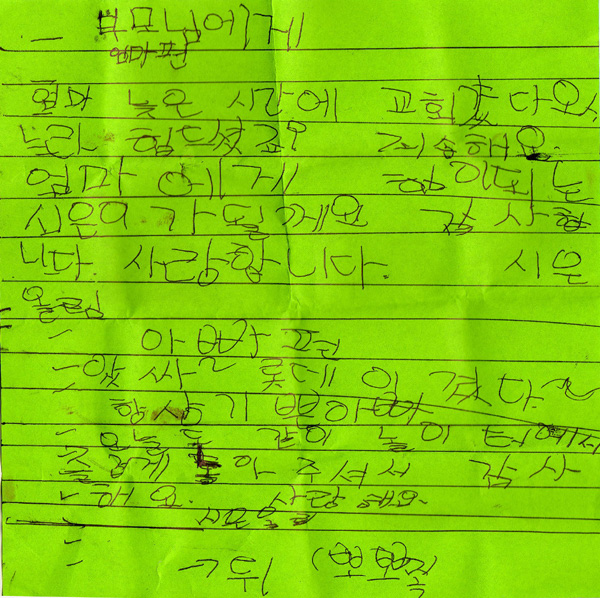 부모님에게
엄마편
엄마 늦은 시간에 교회갔다오시
느라 힘드셨죠? 죄송해요.
엄마에게 힘이되는
시은이가 될께요 감사합
니다. 사랑합니다. 시은
올림
아빠편
앗싸~ 롯데이겼다~
항상 기쁜아빠
오늘도 같이 놀이터에서
즐겁게 놀아주셔서 감사
해요. 사랑해요.
시은올림
뒤 (뽀뽀